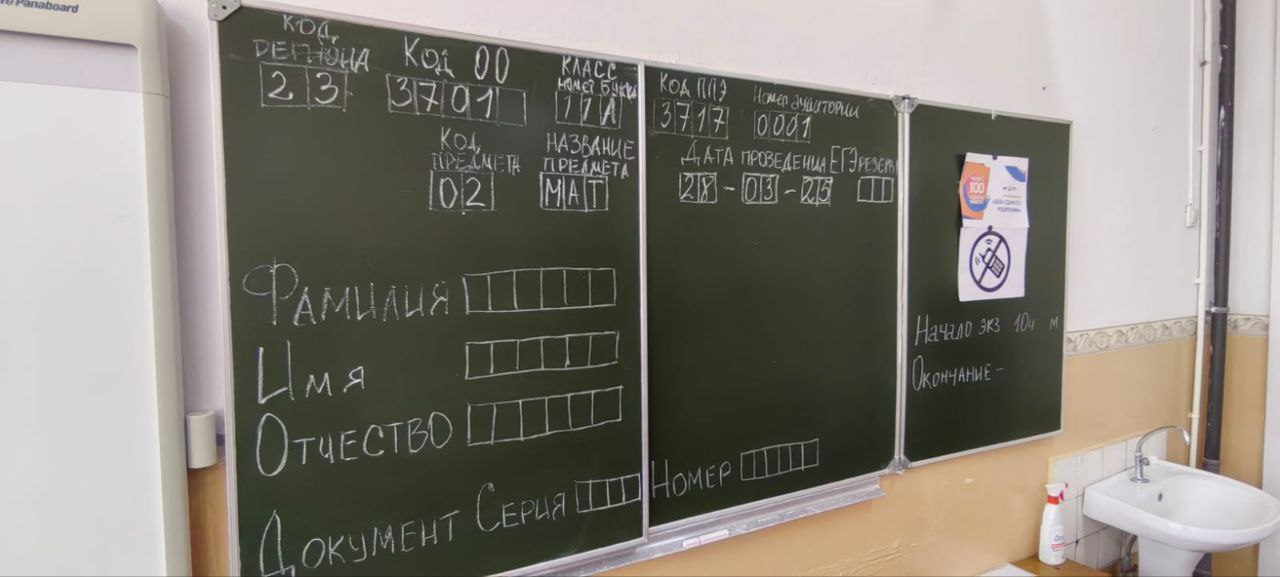 Panaboard
КОД РЕГИОНА
23
КОД ОО
3701
КЛАСС
НОМЕР БУКВА
11А
КОД ПРЕДМЕТА
02
НАЗВАНИЕ ПРЕДМЕТА
МАТ
ФАМИЛИЯ
ИМЯ
ОТЧЕСТВО
ДОКУМЕНТ СЕРИЯ
КОД ППЭ
3717
НОМЕР АУДИТОРИИ
0001
ДАТА ПРОВЕДЕНИЯ ЕГЭ
28-03-25
РЕЗЕРВ
НОМЕР
100
НАЧАЛО ЭКЗ 10Ч М
ОКОНЧАНИЕ -